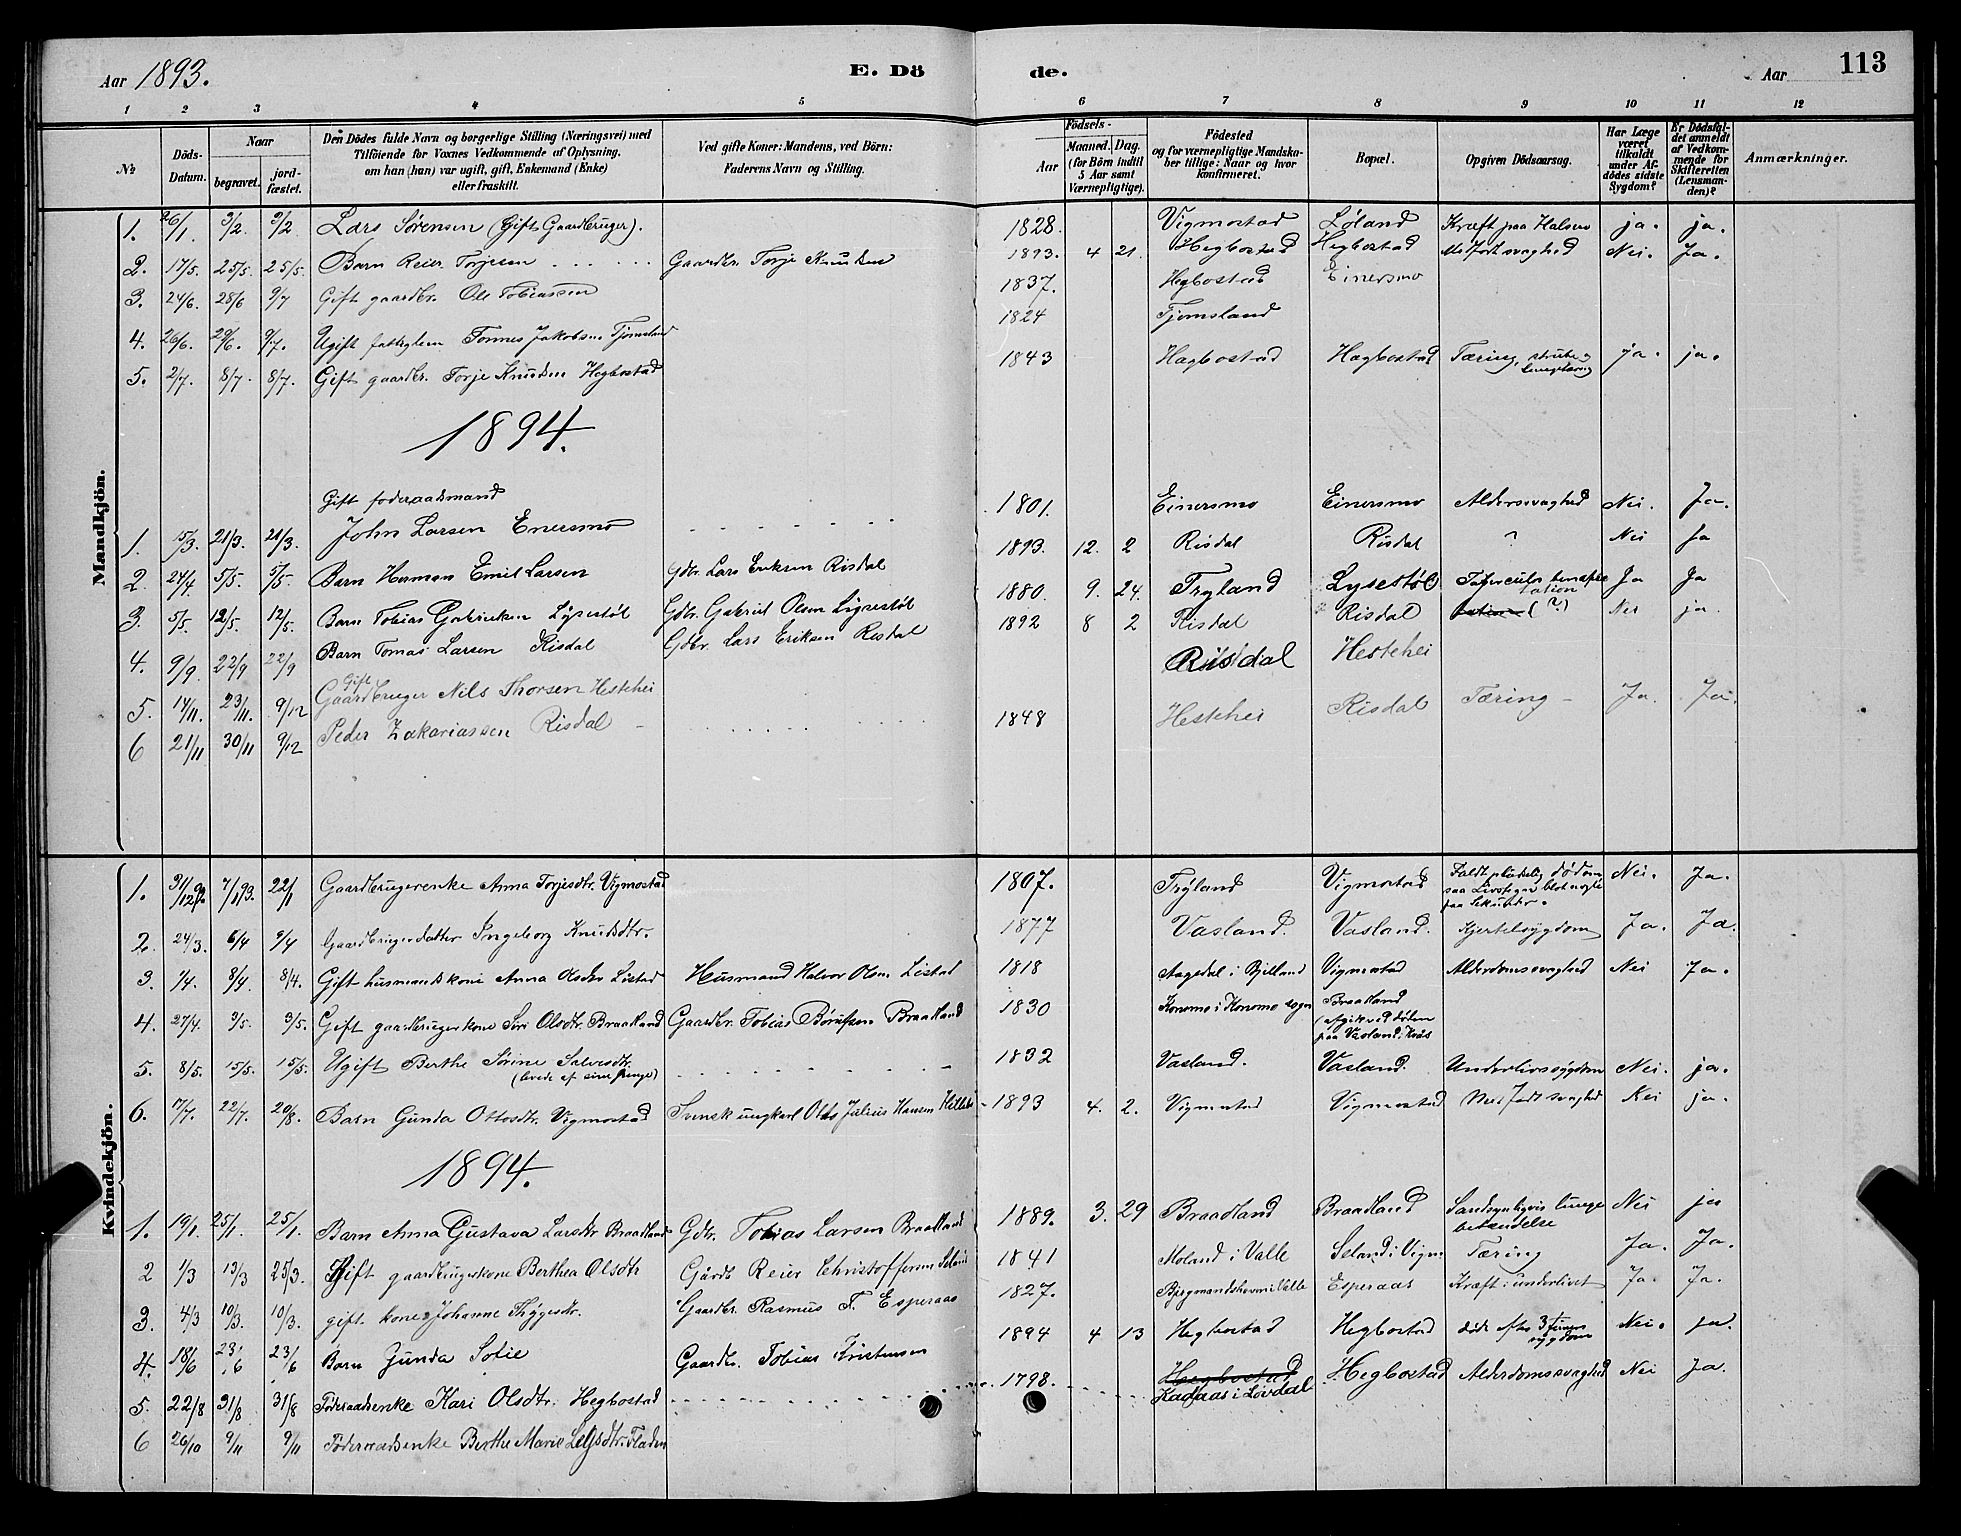 Aar 1893.
E. Dö
de.
Aar
113
1 2 3 4 5 6 7 8 9 10 11 12
№
Döds-Datum.
Naar
begravet.
jord-fæstet.
Den Dödes fulde Navn og borgerlige Stilling (Næringsvei) med
Tilföiende for Voxnes Vedkommende af Oplysning,
om han (hun) var ugift, gift, Enkemand (Enke)
eller fraskilt.
Ved gifte Koner: Mandens, ved Börn:
Faderens Navn og Stilling.
Födsels-
Aar
Maaned. Dag.
(for Börn indtil
5 Aar samt
Værnepligtige).
Födested
og for værnepligtige Mandska-
ber tillige: Naar og hvor
konfirmeret.
Bopæl.
Opgiven Dödsaarsag.
Har Læge
været
tilkaldt
under Af-
dödes sidste
Sygdom?
Er Dödsfal-
det anmeldt
af Vedkom-
mende for
Skifteretten
(Lensman-
den)?
Anmærkninger.
Mandkjön.
1. 26/1 3/2 3/2 Lars Sørensen (Gift Gaardbruger). 1828. Vigmostad Løland Kræft paa Halsen ja. ja.
2. 17/5. 25/5. 25/5. Barn Reier Torjesen Gaardbr. Torje Knudsen 1893. 4 21. Hegbostad Hegbostad Medfødt svaghed Nei. Ja.
3. 24/6. 28/6 9/7 Gift gaardbr. Ole Tobiassen 1837. Hegbostad Einersmo
4. 26/6. 29/6. 9/7. Ugift fattiglem Tønnes Jakobsen Tjomsland 1824 Tjomsland
5. 2/7. 8/7. 8/7. Gift gaardbr. Torje Knudsen Hegbostad 1843 Hægbostad Hægbostad Tæring, ja. ja.
1894.
Gift føderaadsmand
1. 15/3. 21/3. 21/3. John Larsen Enersmo 1801. Einersmo Einersmo Alderssvaghed Nei. Ja.
2. 24/4 5/5. 5/5. Barn Herman Emil Larsen Gdbr. Lars Eriksen Risdal 1893. 12. 2 Risdal Risdal ? Nei Ja
3. 5/5. 12/5. 12/5. Barn Tobias Gabrielsen Lysestøl Gdbr. Gabriel Olsen Lysestøl 1880. 9. 24. Tryland Lysestøl Ja Ja
4. 9/9. 22/9 22/9 Barn Tomas Larsen Risdal Gdbr. Lars Eriksen Risdal 1892 8 2 Risdal Risdal (?) Nei ja.
Gift
5. 14/11. 23/11. 9/12 Gaardbruger Nils Thorsen Hestehei Risdal Hestehei
6 21/11 30/11 9/12 Peder Zakariassen Risdal 1848 Hestehei Risdal Tæring Ja. Ja.
Kvindekjön.
1. 31/12 92. 7/1 93. 22/1 Gaardbrugerenke Anna Torjesdtr. Vigmostad 1807. Tryland Vigmostad Faldt pludselig død om saa Livstegn blot nogle faa Sekunder. Nei. Ja.
2. 24/3. 6/4 9/4 Gaardbrugerdatter Ingeborg Knudsdtr. 1877 Vasland. Vasland. Kjertelsygdom Ja. Ja.
3. 1/4. 8/4 8/4. Gift husmandskone Anna Olsdtr Listad Husmand Halvor Olsen Listad 1818 Aagedal i Bjelland Vigmostad Alderdomssvaghed Nei Ja.
4. 27/4. 3/5. 3/5. Gift gaardbrugerkone Siri Olsdtr. Braadland Gaardbr. Tobias Børufsen Braadland 1830 Konsmo i Konsmo sogn Braadland (afgik ved døden paa Vasland i Kvås
5. 8/5. 15/5. 15/5. Ugift Berthe Sørine Salvesdtr. (levede af sine penge) 1832 Vasland. Vasland. Underlivssygdom Nei. ja.
6. 7/7. 22/7. 20/8. Barn Gunda Ottosdtr. Vigmostad Svensk ungkarl Otto Julius Hansen 1893 4. 2. Vigmostad Vigmostad Medfødt svaghed Nei ja.
1894.
1. 19/1. 25/1. 25/1. Barn Anna Gustava Larsdtr Braadland Gdbr. Tobias Larsen Braadland 1889. 3. 29 Braadland Braadland Sandsynligvis lungebetændelse Nei ja
2 1/3 13/3 25/3. Gift gaardbrugerkone Berthea Olsdtr Gårdb Reier Christoffersen Seland 1841 Moland i Valle Seland i Vigm. Tæring Ja. Ja.
3. 4/3 10/3. 10/3. gift kone Johanne Thygesdtr. Gaardbr. Rasmus T. Esperaas 1827. Bjergmandsheven i Valle Esperaas Kræft i underlivet Ja. Ja.
4. 18/6 23/6 23/6 Barn Gunda Sofie Gaardbr. Tobias Kristensen 1894 4 13 Hegbostad Hegbostad døde efter 3 timers sygdom Nei. ja.
5. 22/8 31/8 31/8 Føderaadsenke Kari Olsdtr. Hegbostad 1798. Hegbostad Kadaas i Løvdal Hegbostad Alderdomssvaghed Nei Ja.
6 26/10 9/11 9/11 Føderaadsenke Berthe Marie